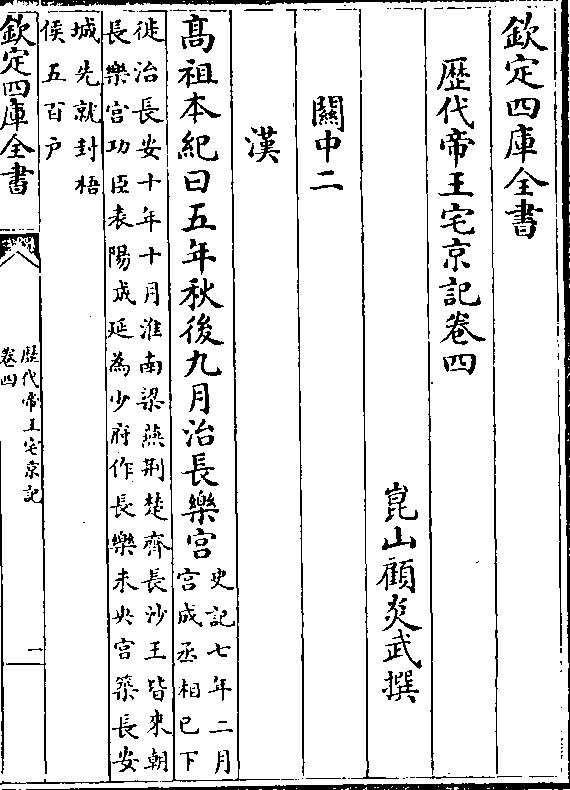 欽定四庫全書
歴代帝王宅京記卷四
崑山顧炎武撰
關中二
漢
髙祖本紀曰五年秋後九月治長樂宫史記七年二月
宫成丞相已下
徙治長安十年十月淮南梁燕荆楚齊長沙王皆來朝
長樂宫功臣表陽成延為少府作長樂未央宫築長安
城先就封梧
侯五百户
欽定四庫全書
歴代帝王宅京記
卷四
一